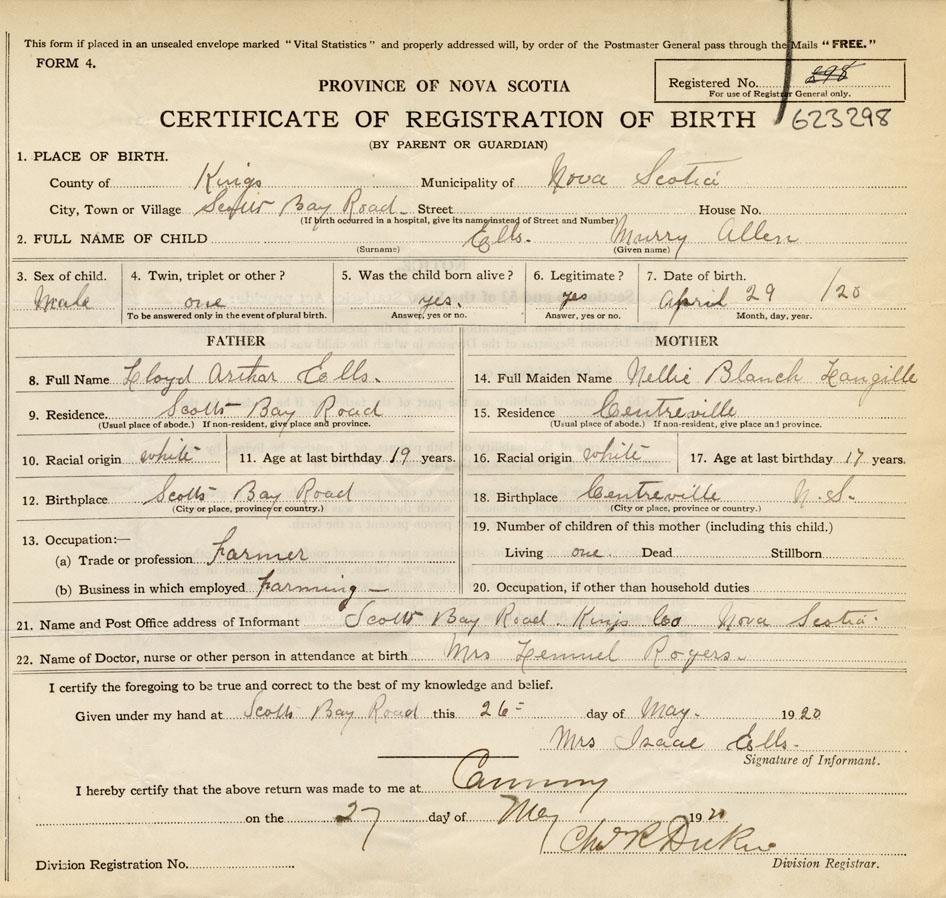 This form if placed in an unsealed envelope marked "Vital Statistics" and properly addressed will, by order of the Postmaster General pass through the Mails "FREE."
FORM 4.
Registered No. 298
For use of Registrar General only.
PROVINCE OF NOVA SCOTIA
CERTIFICATE OF REGISTRATION OF BIRTH 623298
(BY PARENT OR GUARDIAN)
1. PLACE OF BIRTH.
County of Kings Municipality of Nova Scotia
City, Town or Village Scotts Bay Road Street House No.
(If birth occurred in a hospital, give its name instead of Street and Number)
2. FULL NAME OF CHILD Ells. Murry Allen
(Surname) (Given name)
3. Sex of child. 4. Twin, triplet or other? 5. Was the child born alive? 6. Legitimate? 7. Date of birth.
Male one yes. yes April 29 /20
To be answered only in the event of plural birth. Answer, yes or no. Answer, yes or no. Month, day, year.
FATHER
8. Full Name Lloyd Arthar Ells.
9. Residence. Scotts Bay Road
(Usual place of abode.) If non-resident, give place and province.
10. Racial origin white 11. Age at last birthday 19 years.
12. Birthplace Scotts Bay Road
(City or place, province or country.)
13. Occupation:—
(a) Trade or profession Farmer
(b) Business in which employed Farming —
MOTHER
14. Full Maiden Name Nellie Blanch Langille
15. Residence Centreville
(Usual place of abode.) If non-resident, give place and province.
16. Racial origin white 17. Age at last birthday 17 years.
18. Birthplace Centreville N.S.
(City or place, province or country.)
19. Number of children of this mother (including this child.)
Living one. Dead Stillborn
20. Occupation, if other than household duties
21. Name and Post Office address of Informant Scotts Bay Road. Kings Co Nova Scotia.
22. Name of Doctor, nurse or other person in attendance at birth Mrs Lemuel Rogers.
I certify the foregoing to be true and correct to the best of my knowledge and belief.
Given under my hand at Scotts Bay Road this 26 day of May. 1920
Mrs Isaac Ells.
Signature of Informant.
I hereby certify that the above return was made to me at Canning
on the 27 day of May 1920
Division Registration No. Division Registrar.